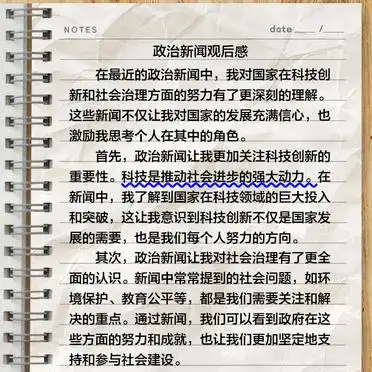 NOTES
date ____ /____
政治新闻观后感
在最近的政治新闻中，我对国家在科技创
新和社会治理方面的努力有了更深刻的理解。
这些新闻不仅让我对国家的发展充满信心，也
激励我思考个人在其中的角色。
首先，政治新闻让我更加关注科技创新的
重要性。科技是推动社会进步的强大动力。在
新闻中，我了解到国家在科技领域的巨大投入
和突破，这让我意识到科技创新不仅是国家发
展的需要，也是我们每个人努力的方向。
其次，政治新闻让我对社会治理有了更全
面的认识。新闻中常常提到的社会问题，如环
境保护、教育公平等，都是我们需要关注和解
决的重点。通过新闻，我们可以看到政府在这
些方面的努力和成就，也让我们更加坚定地支
持和参与社会建设。